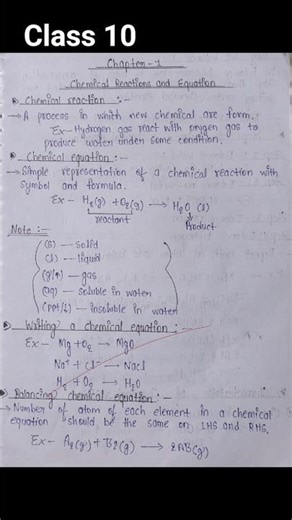 Class 10
Chapter-1
Chemical Reactions and Equation
Chemical reaction :-
→ A process in which new chemical are form.
Ex- Hydrogen gas react with oxygen gas to
produce water under some condition.
Chemical equation :-
→ Simple representation of a chemical reaction with
Symbol and formula.
Ex - H₂(g) + O₂(g) → H₂O (l)
reactant
Product
Note :-
(S) — solid
(l) — liquid
(g/↑) — gas
(aq) — soluble in water
(PPt/↓) — insoluble in water
Writing a chemical equation :-
Ex- Mg + O₂ → MgO
Na⁺ + Cl⁻ → Nacl
H₂ + O₂ → H₂O
Balancing chemical equation :-
→ Number of atom of each element in a chemical
equation should be the same on LHS and RHS.
Ex- A₂(g) + B₂(g) → 2AB(g)